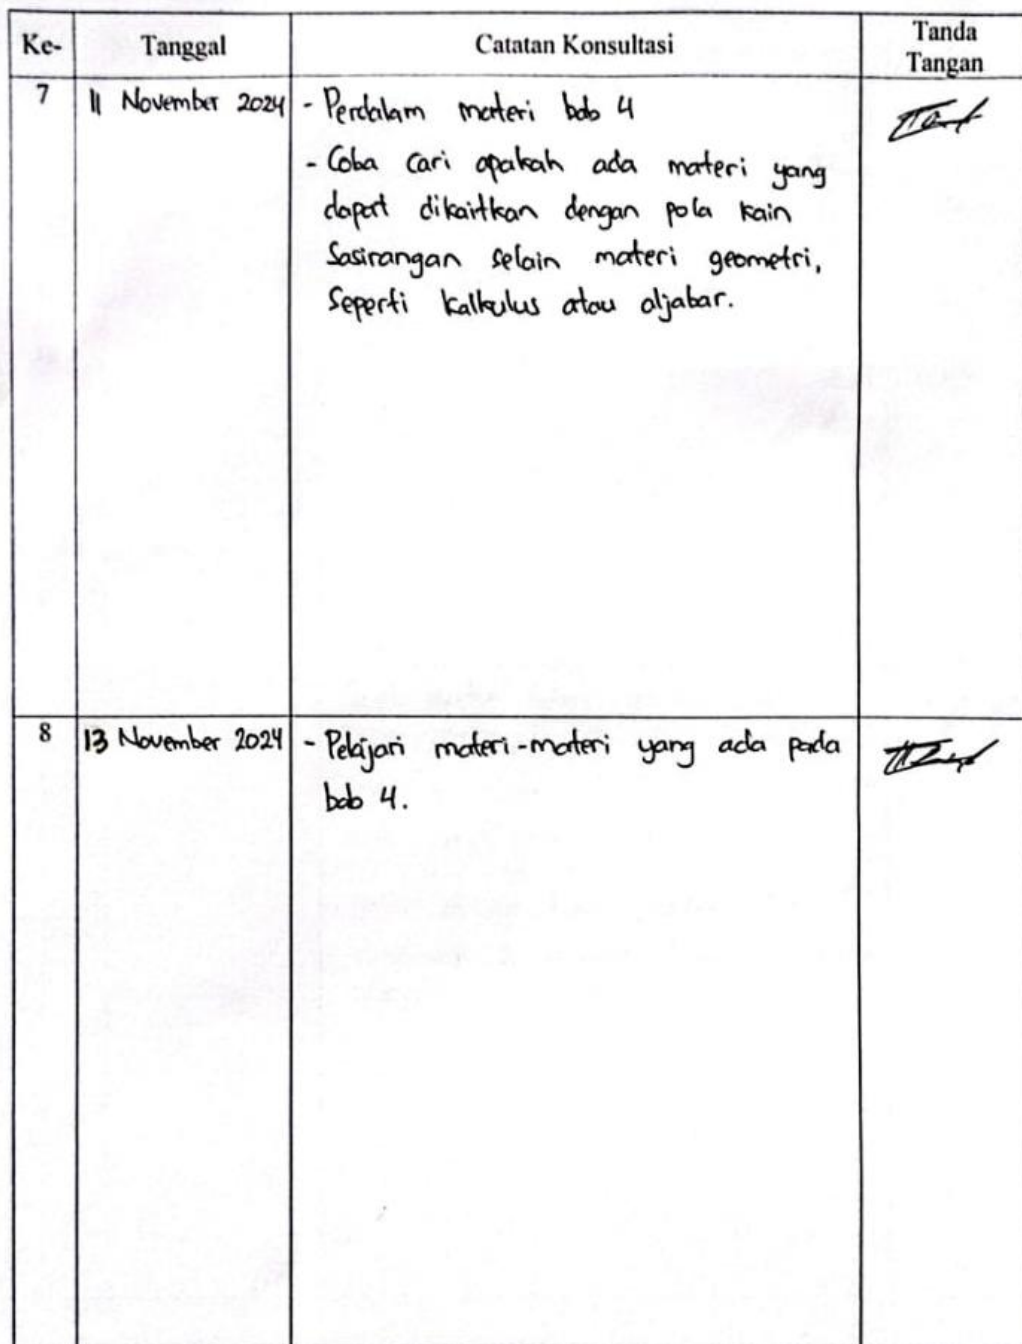 Ke- Tanggal Catatan Konsultasi Tanda Tangan
7 11 November 2024 - Perdalam materi bab 4
- Coba cari apakah ada materi yang
dapat dikaitkan dengan pola kain
Sasirangan selain materi geometri,
Seperti kalkulus atau aljabar.
8 13 November 2024 - Pelajari materi-materi yang ada pada
bab 4.